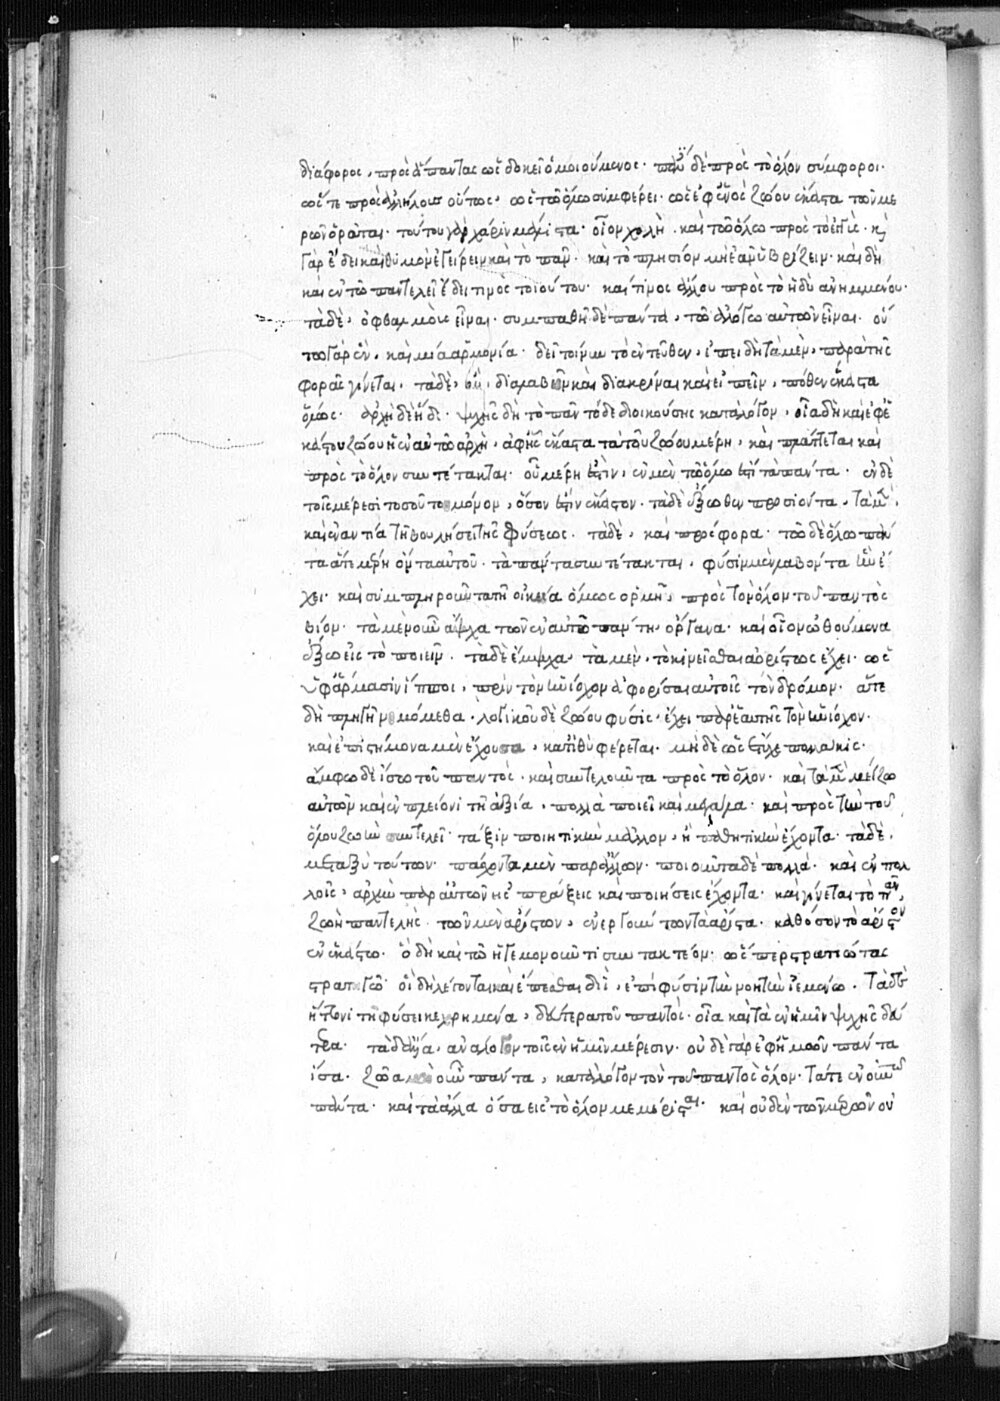 διάφορος, πρὸς ἅπαντας ὡς δοκεῖ ὁμοιούμενος· πάντων δὲ πρὸς τὸ ὅλον σύμφοροι·
ὥς τε πρὸς ἀλλήλους οὕτως, ὡς τῷ ὅλῳ συμφέρει· ὡς ἐφ' ἑνὸς ζώου ἕκαστα τῶν με
ρῶν ὁρᾶται· τούτου γὰρ χάριν μάλιστα· οἷον χολὴ, καὶ τῷ ὅλῳ πρὸς τὸ
γὰρ ἔδει καὶ θυμὸν ἐγείρειν καὶ τὸ πᾶν, καὶ τὸ πλησίον μὴ ἐᾶν ὑβρίζειν· καὶ δὴ
καὶ ἐν τῷ παντελεῖ ἔδει τινος τοιούτου· καί τινος ἄλλου πρὸς τὸ ἡδὺ ἀνημμένου·
τὰ δὲ, ὀφθαλμοὺς εἶναι· συμπαθῆ δὲ πάντα, τῷ ἀλόγῳ αὐτῶν εἶναι· οὕ
τω γὰρ ἓν, καὶ μία ἁρμονία· δεῖ τοίνυν τὸ ἐντεῦθεν, ἐπειδὴ τὰ μὲν, παρὰ τῆς
φορᾶς γίνεται, τὰ δὲ, οὔ, διαλαβεῖν καὶ διακρῖναι καὶ εἰπεῖν, πόθεν ἕκαστα
ὅλως· ἀρχὴ δὲ ἥδε· ψυχῆς δὴ τὸ πᾶν τόδε διοικούσης κατὰ λόγον, οἷα δὴ καὶ ἐφ' ἑ
κάστου ζώου ἡ ἐν αὐτῷ ἀρχὴ, ἀφ' ἧς ἕκαστα τὰ τοῦ ζώου μέρη, καὶ πλάττεται καὶ
πρὸς τὸ ὅλον συντέτακται· οὗ μέρη ἐστὶν, ἐν μὲν τῷ ὅλῳ ἐστὶ τὰ πάντα· ἐν δὲ
τοῖς μέρεσι τοσοῦτο μόνον, ὅσον ἐστὶν ἕκαστον· τὰ δὲ ἔξωθεν προσιόντα, τὰ μὲν,
καὶ ἐναντία τῇ βουλήσει τῆς φύσεως· τὰ δὲ, καὶ πρόσφορα· τῷ δὲ ὅλῳ πάν
τα ἅτε μέρη ὄντα αὐτοῦ· τὰ πάντα συντέτακται, φύσιν μὲν λαβόντα ἣν ἔ
χει· καὶ συμπληροῦντα τῇ οἰκείᾳ ὅμως ὁρμῇ, πρὸς τὸν ὅλον τοῦ παντὸς
βίον· τὰ μὲν οὖν ἄψυχα τῶν ἐν αὐτῷ πάντη, ὄργανα· καὶ οἷον ὠθούμενα
ἔξω εἰς τὸ ποιεῖν· τὰ δὲ ἔμψυχα, τὰ μὲν, τὸ κινεῖσθαι ἀορίστως ἔχει· ὡς
ὑφ' ἅρμασιν ἵπποι, πρὶν τὸν ἡνίοχον ἀφορίσαι αὐτοῖς τὸν δρόμον· ἅτε
δὴ πληγῇ νεμόμεθα, λογικοῦ δὲ ζώου φύσις, ἔχει παρ' ἑαυτῆς τὸν ἡνίοχον·
καὶ ἐπιστήμονα μὲν ἔχουσα, κατιθὺ φέρεται· μὴ δὲ ὡς ἔτυχε πολλάκις·
ἄμφω δὲ εἴσω τοῦ παντὸς, καὶ συντελοῦντα πρὸς τὸ ὅλον· καὶ τὰ μὲν μείζω
αὐτῶν καὶ ἐν πλείονι τῇ ἀξίᾳ, πολλὰ ποιεῖ καὶ μεγάλα, καὶ πρὸς τὴν τοῦ
ὅλου ζωὴν συντελεῖ τάξιν ποιητικὴν μᾶλλον, ἢ παθητικὴν ἔχοντα· τὰ δὲ,
μεταξὺ τούτων, πάσχοντα μὲν παρ' ἄλλων, ποιοῦντα δὲ πολλά· καὶ ἐν πολ
λοῖς, ἀρχὴν παρ' αὑτῶν εἰς πράξεις καὶ ποιήσεις ἔχοντα· καὶ γίνεται τὸ πᾶν,
ζωὴ παντελὴς, τῶν μὲν ἀρίστων, ἐνεργούντων τὰ ἄριστα· καθόσον τὸ ἄριστον
ἐν ἑκάστῳ· ὃ δὴ καὶ τῷ ἡγεμονοῦντι συντακτέον· ὥσπερ στρατιώτας
στρατηγῷ· οἳ δὴ λέγονται καὶ ἕπεσθαι διὶ, ἐπὶ φύσιν τὴν νοητὴν ἱεμένῳ· τὰ δὲ
ἥττονι τῇ φύσει κεχρημένα, δεύτερα τοῦ παντὸς· οἷα καὶ τὰ ἐν ἡμῖν ψυχῆς δεύ
τερα· τὰ δ' ἄλλα, ἀνάλογον τοῖς ἐν ἡμῖν μέρεσιν· οὐδὲ γὰρ ἐφ' ἡμῶν πάντα
ἴσα· ζῶα μὲν οὖν πάντα, κατὰ λόγον τὸν τοῦ παντὸς ὅλον· τά τε ἐν οὐρανῷ
πάντα· καὶ τὰ ἄλλα ὅσα εἰς τὸ ὅλον μεμέρισται· καὶ οὐδὲν τῶν μερῶν οὐ